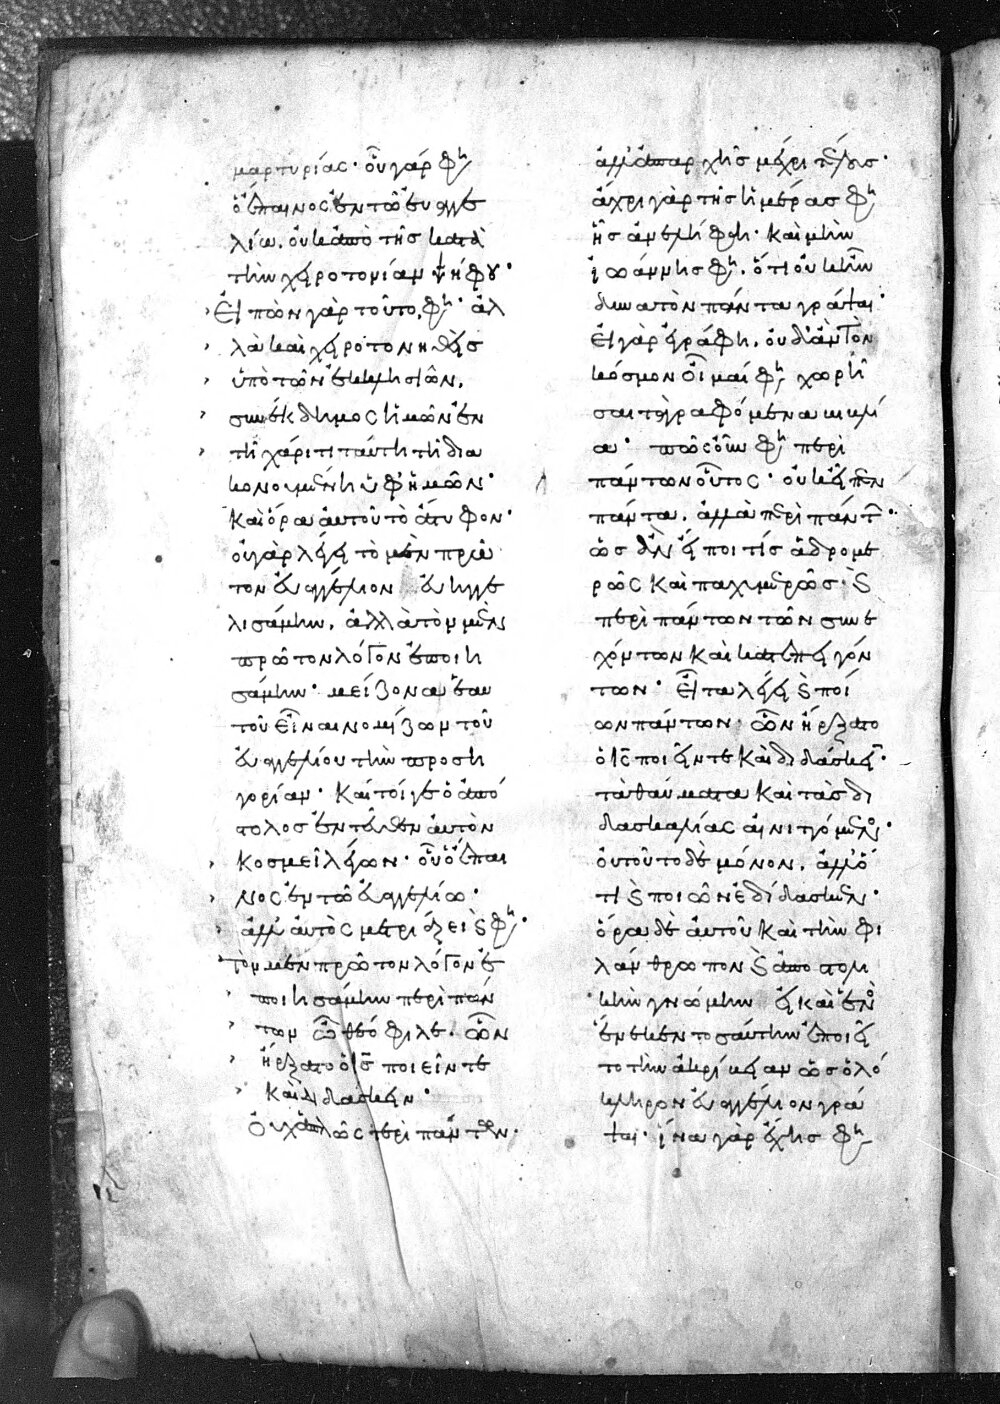 μαρτυρίας· οὗ γάρ φη
ὁ ἔπαινος ἐν τῶ εὐαγγε
λίω. οὐκ ἀπὸ τῆς κατὰ
τὴν χειροτονίαν ψήφου·
Εἰπὼν γὰρ τοῦτο, φη· ἀλ
λὰ καὶ χειροτονηθεὶς
ὑπὸ τῶν ἐκκλησιῶν,
συνέκδημος ἡμῶν ἐν
τῆ χάριτι ταύτη τῆ δια
κονουμένη ὑφ' ἡμῶν·
Καὶ ὅρα αὐτοῦ τὸ ἄτυφον·
οὐ γὰρ λέγει τὸ μὲν πρῶ
τον εὐαγγέλιον εὐηγγε
λισάμην, ἀλλὰ τὸν μὲν
πρῶτον λόγον ἐποιη
σάμην· μείζονα ἑαυ
τοῦ εἶναι νομίζων τοῦ
εὐαγγελίου τὴν προση
γορίαν· Καίτοιγε ὁ ἀπό
στολος ἐντεῦθεν αὐτὸν
κοσμεῖ λέγων· οὗ ὁ ἔπαι
νος ἐν τῶ εὐαγγελίω·
ἀλλ' αὐτὸς μετριάζει φη·
Τὸν μὲν πρῶτον λόγον ἐ
ποιησάμην περὶ πάν
των ὦ θεόφιλε· ὧν
ἤρξατο ὁ ις ποιεῖν τε
καὶ διδάσκειν·
Οὐχ ἁπλῶς περὶ πάντων·
ἀλλ' ἀπ' ἀρχῆς μέχρι τέλους·
ἄχρι γὰρ τῆς ἡμέρας φη
ἧς ἀνελήφθη· καὶ μὴν
ἰωάννης φη, ὅτι οὐκ ἦν
δυνατὸν πάντα γράψαι·
Εἰ γὰρ ἐγράφη, οὐδ' ἂν τὸν
κόσμον οἶμαί φη χωρῆ
σαι τὰ γραφόμενα βιβλί
α· πῶς οὖν φη περὶ
πάντων οὗτος· οὐκ εἶπεν
πάντα. ἀλλὰ περὶ πάντων·
ὡς ἂν εἴποι τίς ἁδρομε
ρῶς καὶ παχυμερῶς· καὶ
περὶ πάντων τῶν συνε
χόντων καὶ κατεπειγόν
των· Εἶτα λέγει καὶ ποί
ων πάντων· ὧν ἤρξατο
ὁ ις ποιεῖν τε καὶ διδάσκειν·
τὰ θαύματα καὶ τὰς δι
δασκαλίας αἰνιττόμενος·
οὐ τοῦτο δὲ μόνον, ἀλλ' ὅ
τι καὶ ποιῶν ἐδίδασκεν·
ὅρα δὲ αὐτοῦ καὶ τὴν φι
λάνθρωπον καὶ ἀποστολι
κὴν γνώμην εἰ καὶ ἑνὸς
ἕνεκεν τοσαύτην ἐποιεῖ
το τὴν ἀκρίβειαν ὡς ὁλό
κληρον εὐαγγέλιον γρά
ψαι· ἵνα γὰρ ἔχης φη